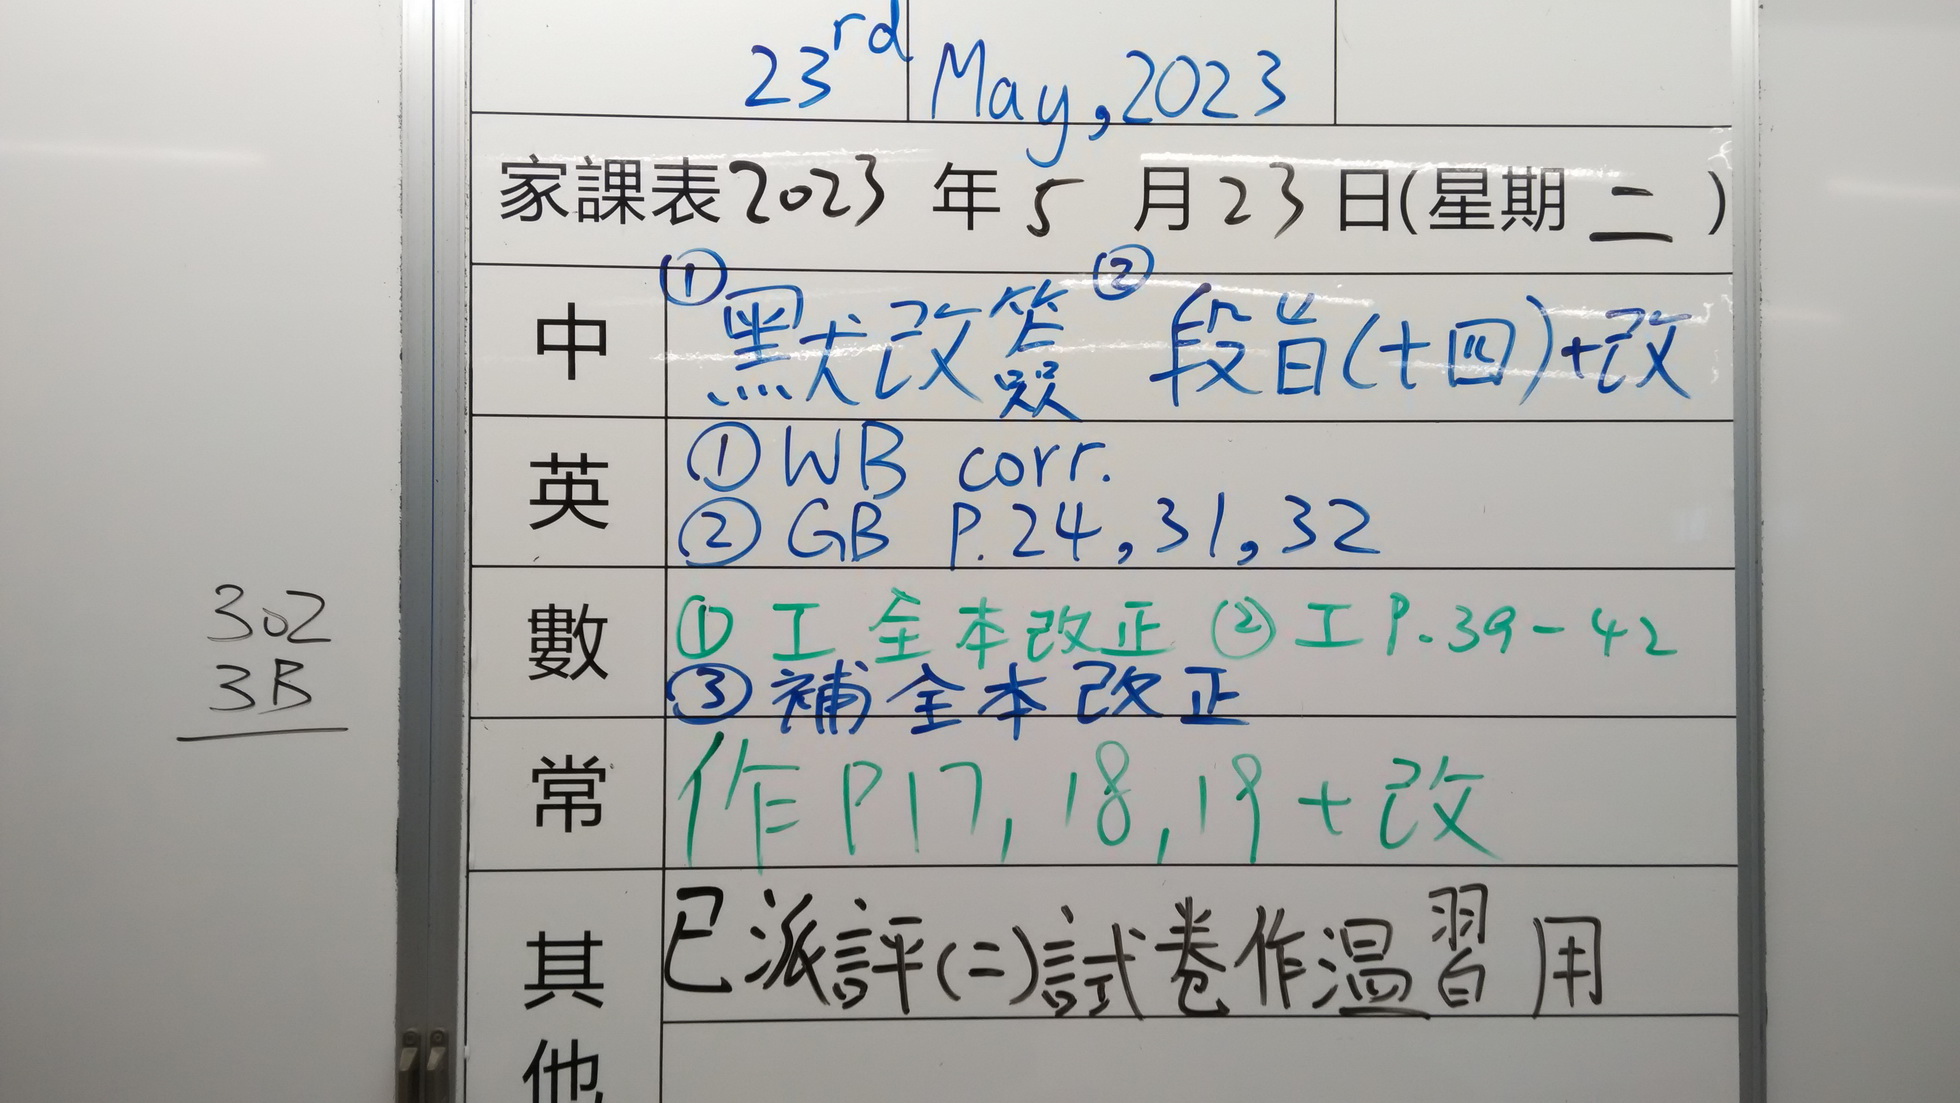 23rd May, 2023
家課表 2023 年 5 月 23 日(星期 二 )
中 ① 默改簽 ② 段旨(十四)+改
英 ① WB corr.
② GB P.24, 31, 32
數 ① 工 全本改正 ② 工 P.39-42
③ 補全本改正
常 作 P17, 18, 19 + 改
其他 已派評(二)試卷作温習用
302
3B